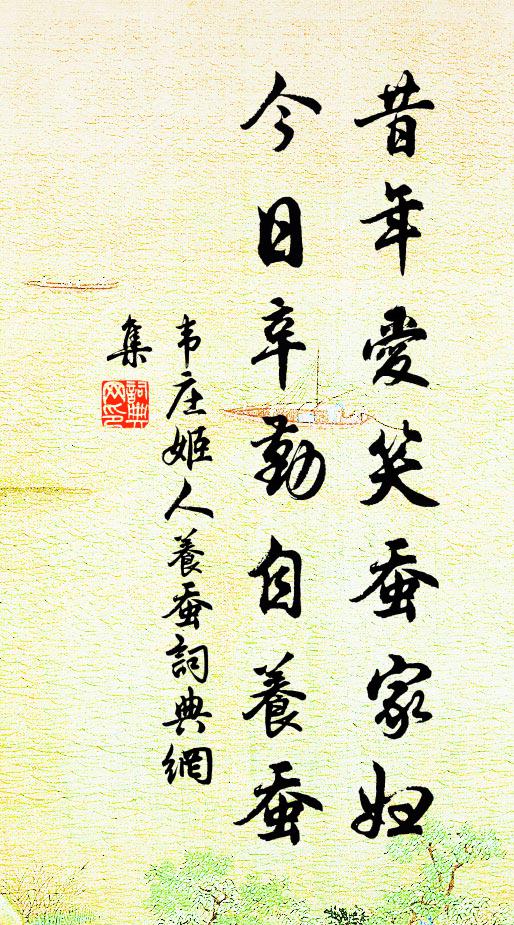 昔年愛笑蚕家妇
今日辛勤自養蚕
韦庄姬人養蚕詞典網
集
詞典
网印